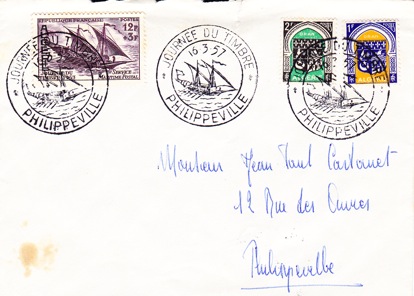 REPUBLIQUE FRANÇAISE POSTES
12F
+3F
SERVICE
MARITIME POSTAL
JOURNEE DU TIMBRE
PHILIPPEVILLE
JOURNEE DU TIMBRE
16.3.57
PHILIPPEVILLE
2F
ORAN
1F
PHILIPPEVILLE
Monsieur Jean Paul Castornet
12 Rue des
Philippeville